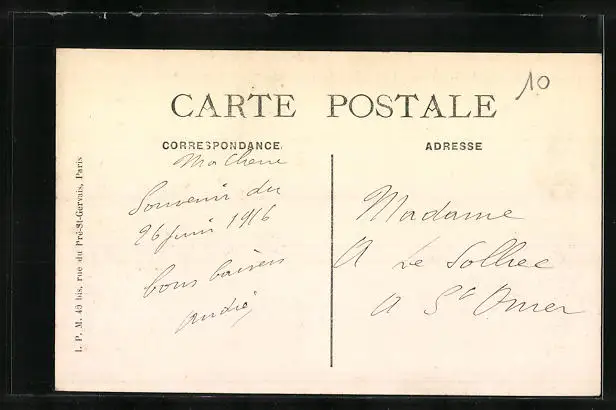 10
CARTE POSTALE
CORRESPONDANCE
ADRESSE
Ma Cherie
Souvenir du
26 juin 1916
bons baisers
André
Madame
A Le
A St Omer
I. P. M. 49 bis, rue du Pré-St-Gervais, Paris